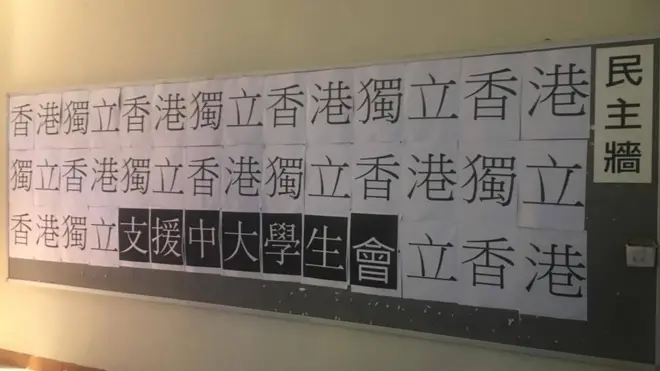 香港獨立香港獨立香港獨立香港
獨立香港獨立香港獨立香港獨立
香港獨立支援中大學生會立香港
民主牆